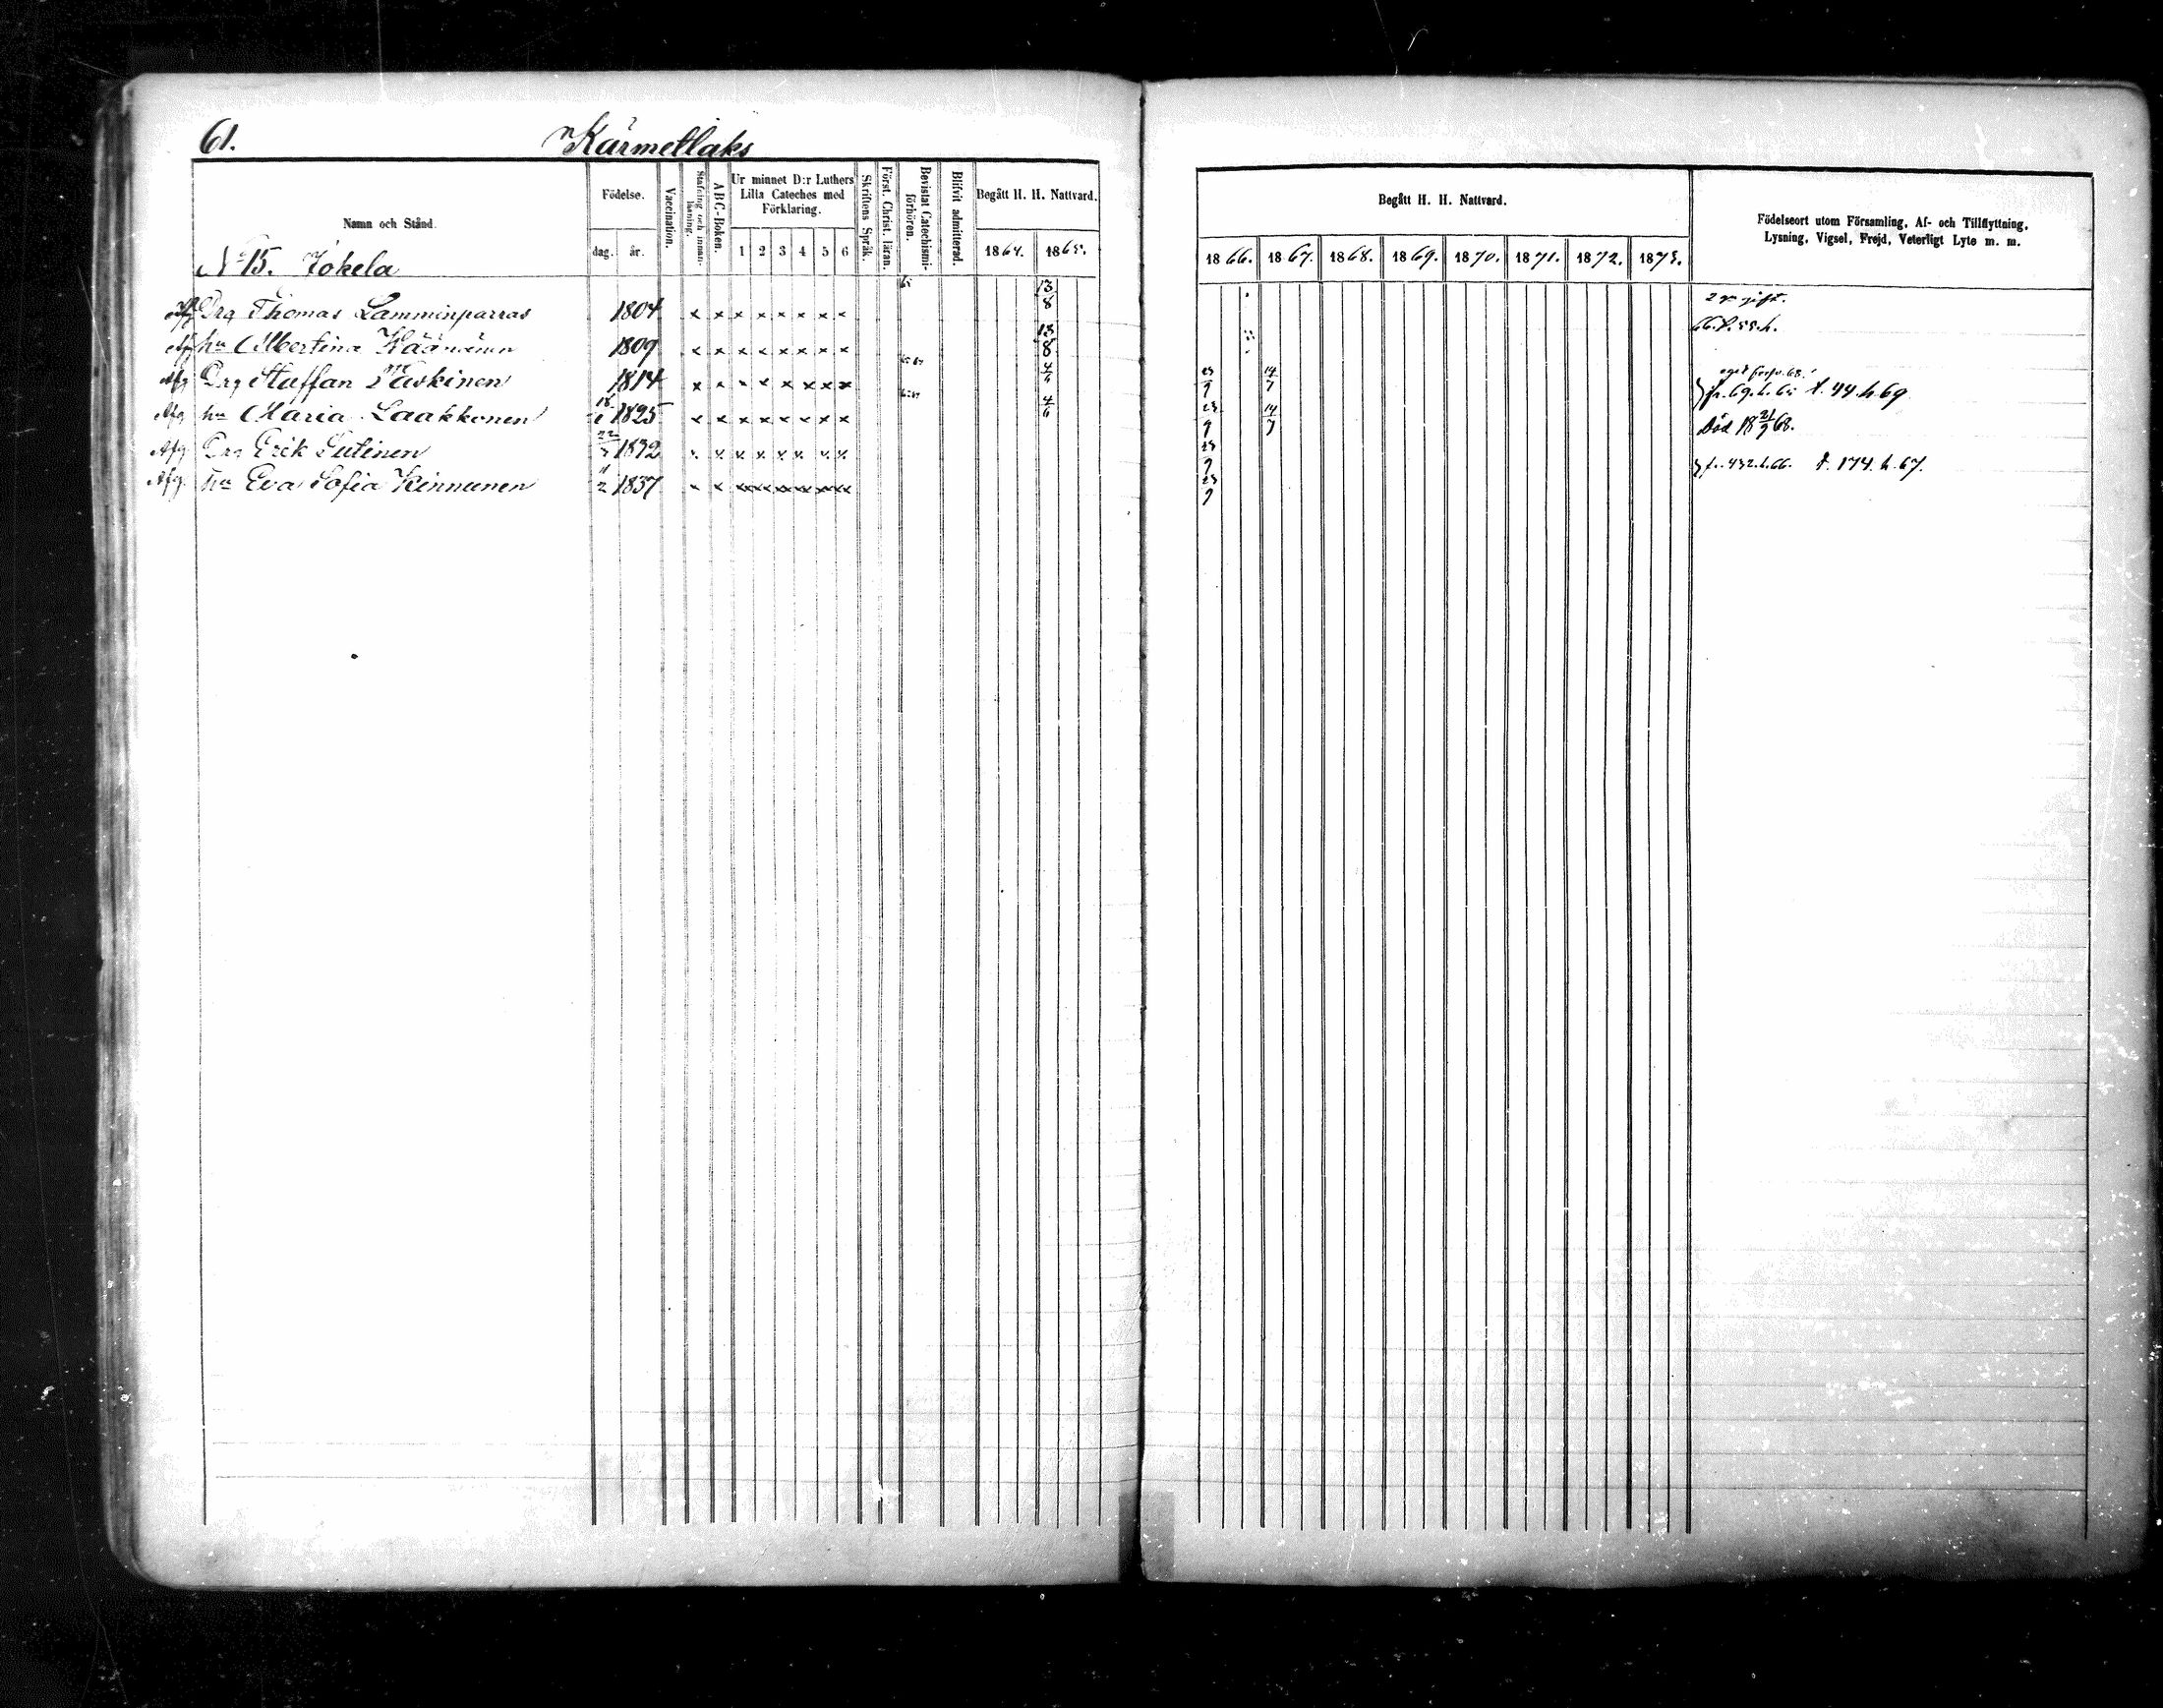 61. Kärmetlaks
Namn och Stånd.
Födelse.
dag. år.
Vaccination.
Stafning och innan-läsning.
ABC-Boken.
Ur minnet D:r Luthers
Lilla Cateches med
Förklaring.
1 2 3 4 5 6
Skriftens Språk.
Först. Christ. läran.
Bevistat Catechismi-förhören.
Blifvit admitterad.
Begått H. H. Nattvard.
1864. 1865.
Begått H. H. Nattvard.
1866. 1867. 1868. 1869. 1870. 1871. 1872. 1873.
Födelseort utom Församling, Af- och Tillflyttning,
Lysning, Vigsel, Frejd, Veterligt Lyte m. m.
No 15. Jokela
Drg Thomas Lamminparras 1804 x x x x x x x x 13/8 2 gr gift.
Afg hu Albertina Käänänen 1809 x x x x x x x x 13/8
Afg Drg Staffan 1814 x x x x x x x x 4/6 23/9 14/7 fr. 69. h. 65 t. 44. h 69
Afg hu Maria Laakkonen 1825 x x x x x x x x 4/6 23/9 14/7 Död 18 21/9 68.
Afg Drg Erik Sutinen 1832 x x x x x x x x 23/9
Afg. hu Eva Sofia Kinnunen 11/2 1837 x x x x x x x x 23/9 fr. 432. h. 66. t. 174. h. 67.